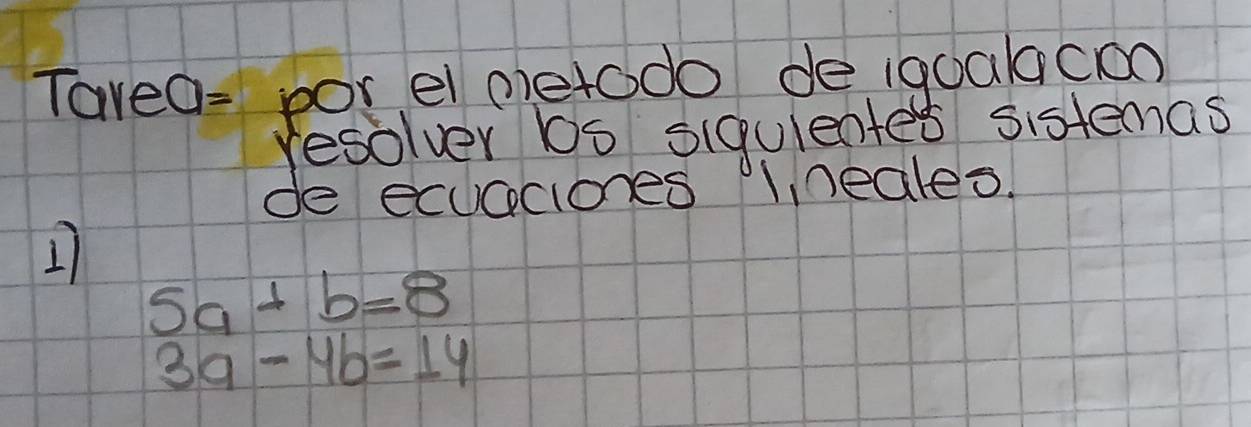 Tarea= por el metodo de igoalacion
resolver los siguientes sistemas
de ecuaciones lineales.
1)
5a + b=8
3a - 4b=14